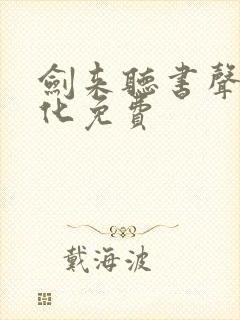 劍来聽書聲
化免費
戴海波